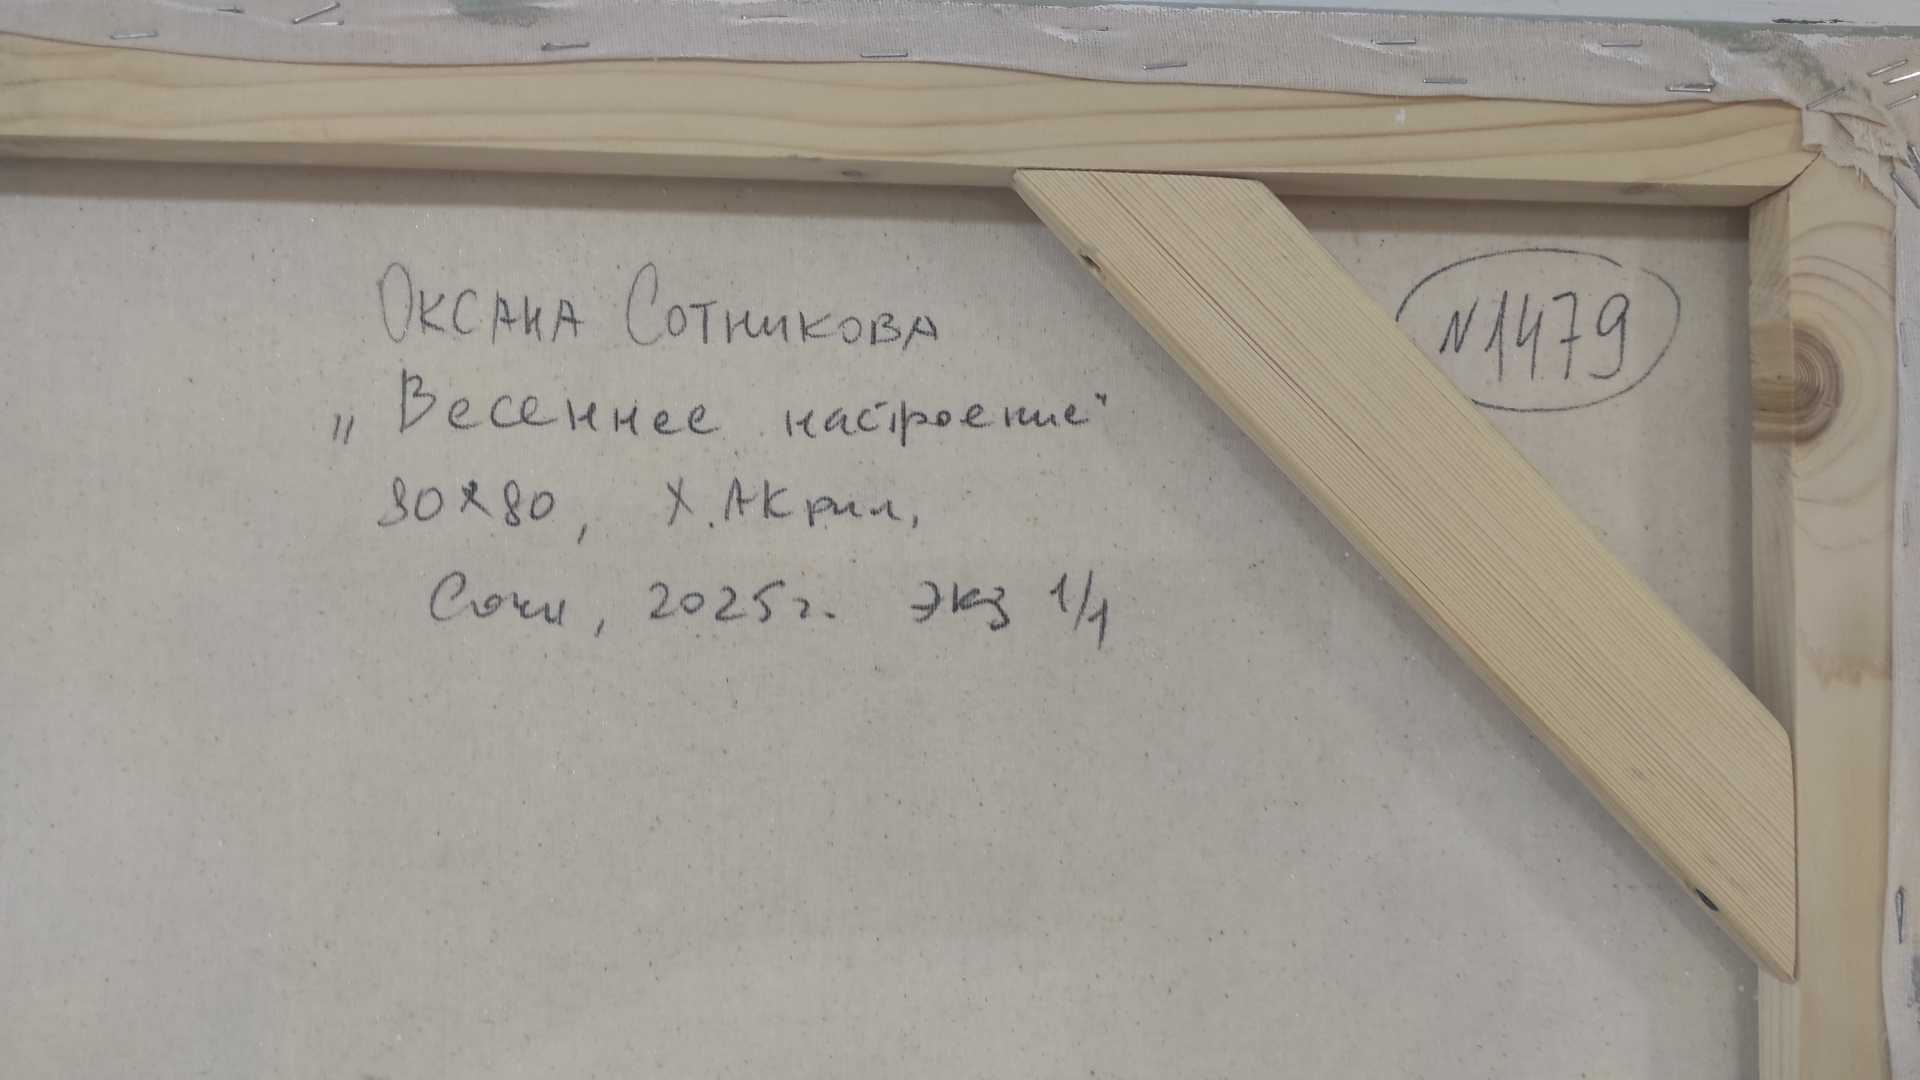 Оксана Сотникова
„Весеннее настроение"
80х80, х.Акрил,
Сочи, 2025г. экз 1/1
N1479